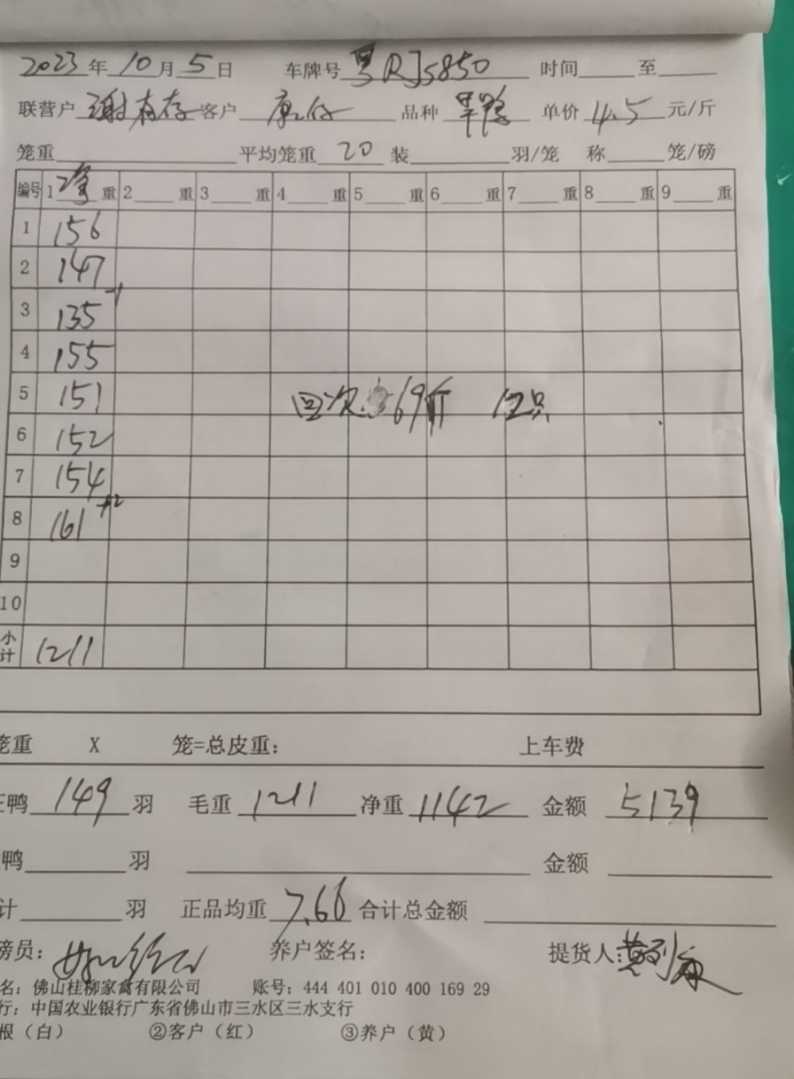 2023年10月5日 车牌号粤RJ5850 时间 至
联营户谢有存客户康仔 品种旱鸭 单价4.5元/斤
笼重 平均笼重20装 羽/笼 称 笼/磅
编号 1净重 2 重 3 重 4 重 5 重 6 重 7 重 8 重 9 重
1 156
2 147
3 135 -1
4 155
5 151 回次 69斤 12只
6 152
7 154
8 161 +2
9
10
小计 1211
笼重 X 笼=总皮重: 上车费
正鸭149羽 毛重1211净重1142 金额5139
鸭 羽 金额
计 羽 正品均重7.66合计总金额
磅员: 养户签名: 提货人:
名: 佛山桂柳家禽有限公司 账号: 444 401 010 400 169 29
行: 中国农业银行广东省佛山市三水区三水支行
根（白） ②客户（红） ③养户（黄）